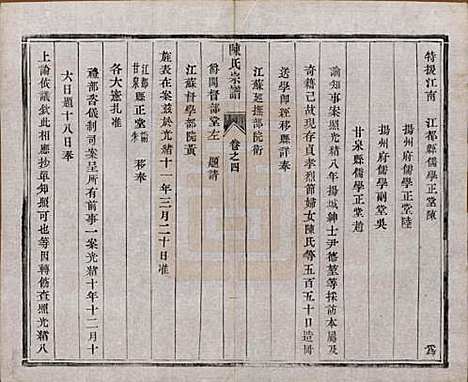 特授江南 江都縣儒學正堂陳
揚州府儒學正堂陸
揚州府儒學副堂吳
甘泉縣儒學正堂趙 爲
諭知事案照光緒八年揚城紳士尹德堃等採訪本屬及
寄籍已故現存貞孝烈節婦女陳氏等五百五十口造冊
送學即經移縣詳奉
江蘇巡撫部院衛
陳氏宗譜 卷之四
爵閣督部堂左 題請
江蘇督學部院黃
旌表在案茲於光緒十一年三月二十日准
江都縣正堂
甘泉縣正堂 移奉
各大憲扎准
禮部咨儀制司案呈所有前事一案光緒十年十二月十
六日題十八日奉
上諭依議欽此相應抄單知照可也等因轉飭查照光緒八